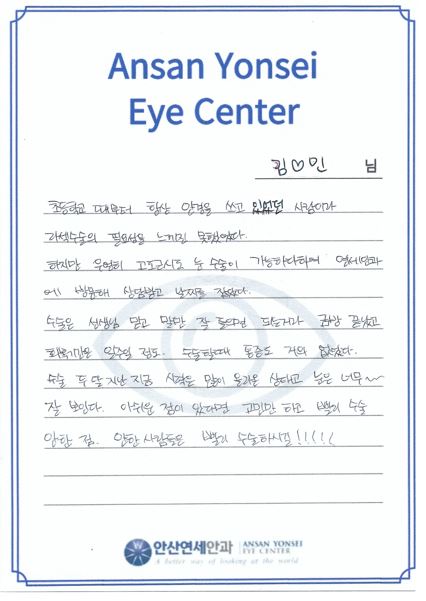 Ansan Yonsei
Eye Center
김♡민 님
초등학교 때부터 항상 안경을 쓰고 있었던 사람이라
라섹수술의 필요성을 느끼진 못했었다.
하지만 우연히 고도근시도 눈 수술이 가능하다하여 연세안과
에 방문해 상담받고 날짜를 잡았다.
수술은 선생님 믿고 말만 잘 들으면 되는거라 금방 끝났고
회복기간은 일주일 정도. 수술할때 통증도 거의 없었다.
수술 두 달 지난 지금 시력은 많이 올라온 상태고 눈은 너무~
잘 보인다. 아쉬운 점이 있다면 고민만 하고 빨리 수술
안한 점. 안한 사람들은 빨리 수술하시길!!!!!
안산연세안과 ANSAN YONSEI
EYE CENTER
A better way of looking at the world